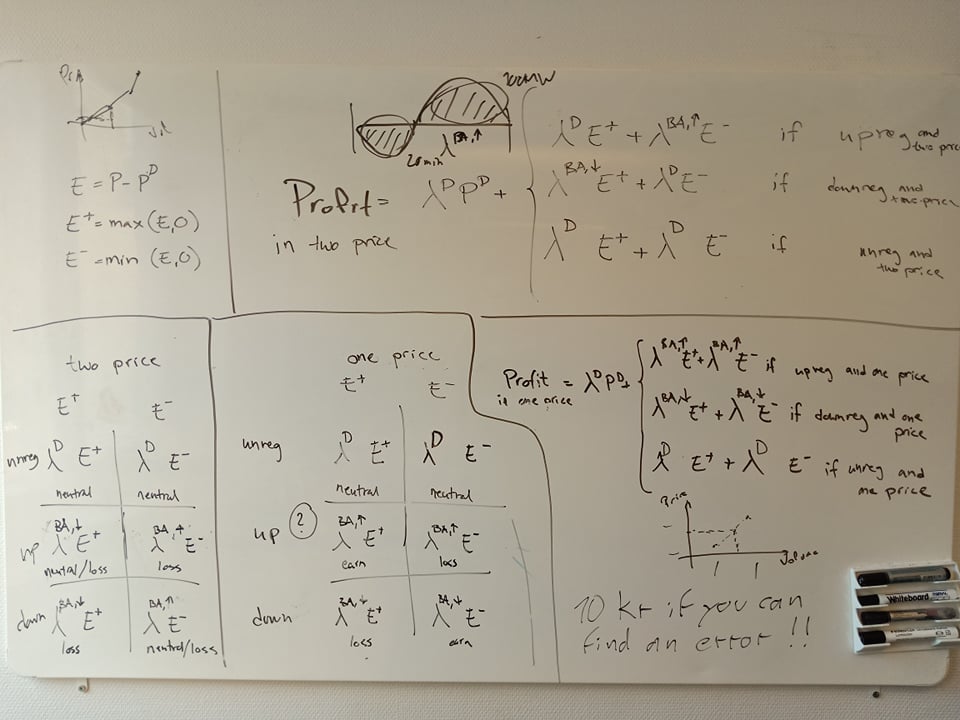 Pr
Vol
E = P - P^D
E^+ = max (E,0)
E^- = min (E,0)
200MW
λ^BA,↑
20min
Profit = λ^D P^D +
in two price
λ^D E^+ + λ^BA,↑ E^- if upreg and two price
λ^BA,↓ E^+ + λ^D E^- if downreg and two price
λ^D E^+ + λ^D E^- if unreg and two price
two price
E^+ E^-
unreg λ^D E^+ λ^D E^-
neutral neutral
up λ^BA,↓ E^+ λ^BA,↑ E^-
neutral/loss loss
down λ^BA,↓ E^+ λ^BA,↑ E^-
loss neutral/loss
one price
E^+ E^-
unreg λ^D E^+ λ^D E^-
neutral neutral
up ? λ^BA,↑ E^+ λ^BA,↑ E^-
earn loss
down λ^BA,↓ E^+ λ^BA,↓ E^-
loss earn
Profit = λ^D P^D +
in one price
λ^BA,↑ E^+ + λ^BA,↑ E^- if upreg and one price
λ^BA,↓ E^+ + λ^BA,↓ E^- if downreg and one price
λ^D E^+ + λ^D E^- if unreg and one price
Price
Volume
10 kr if you can
find an error !!
Whiteboard